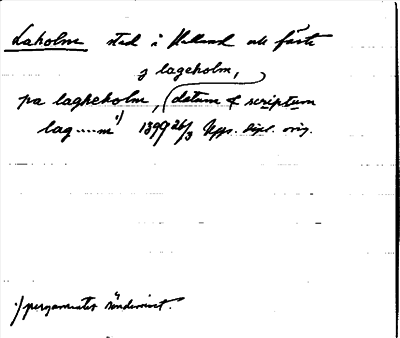 Laholm stad i Halland
j lageholm,
pa lagheholm, (datum & scriptum
lag....m 1) 1399 26/3 Upps. dipl. orig.
1) pergamentet sönderrivet.